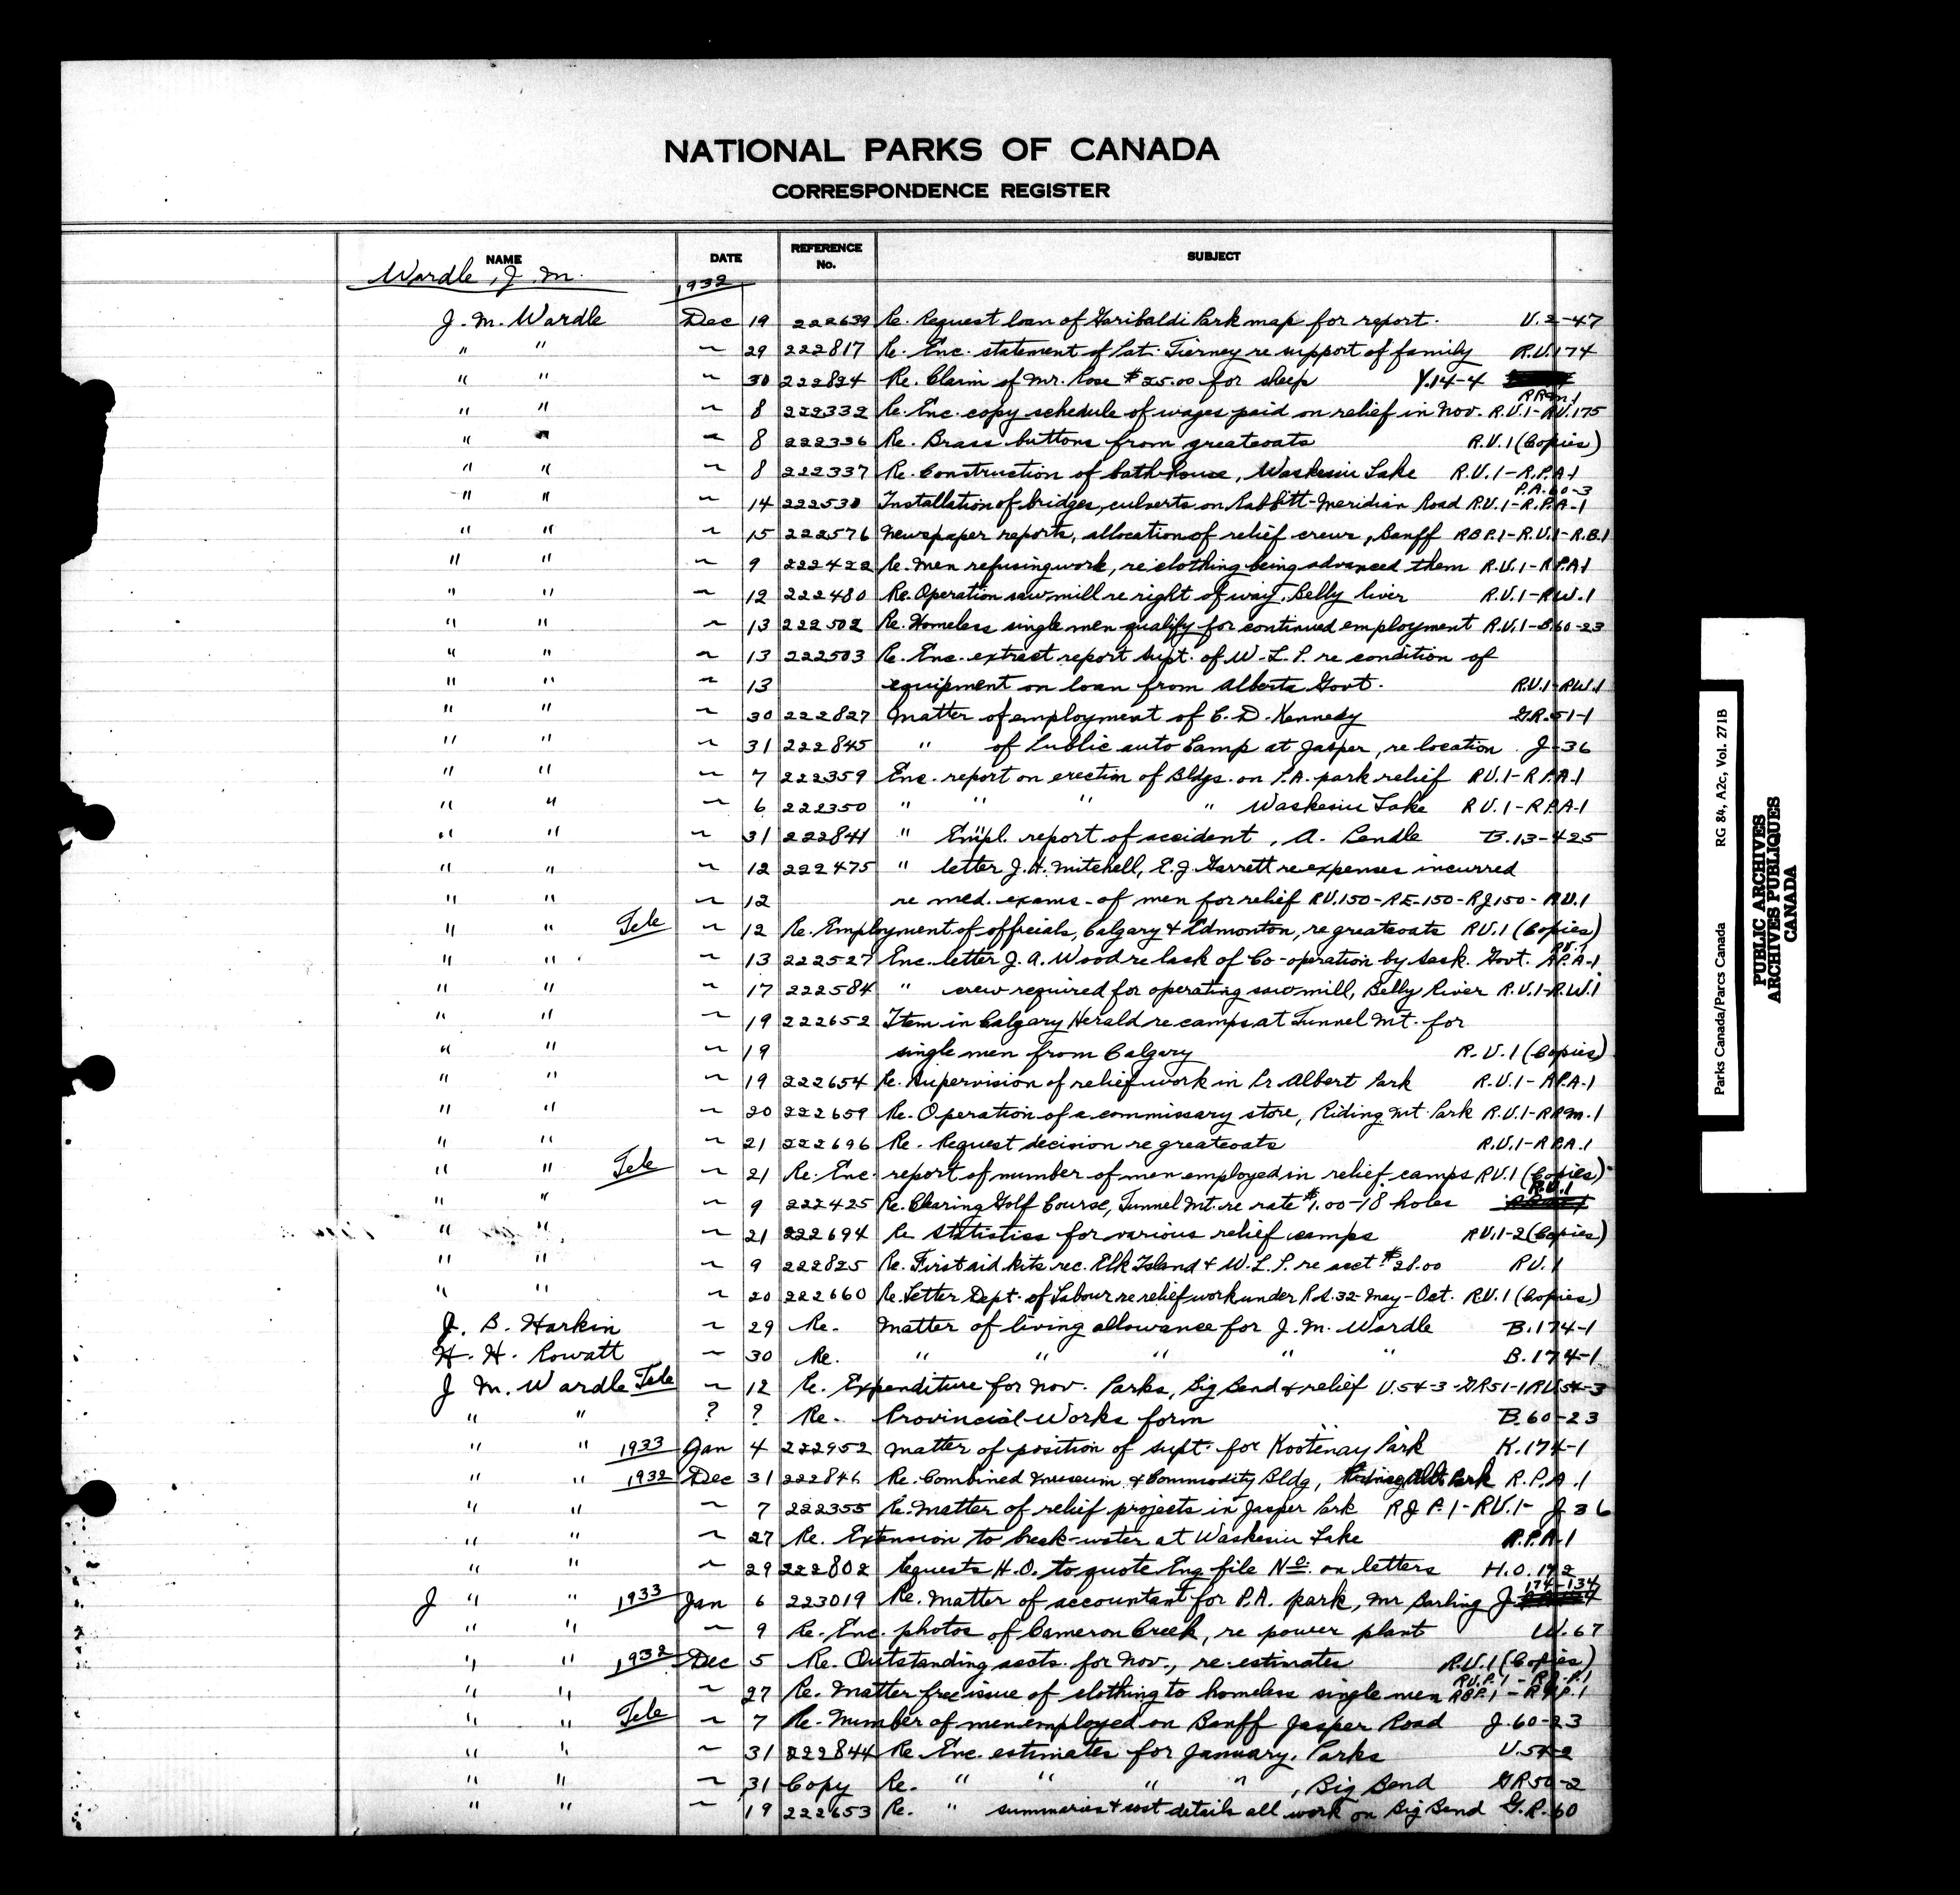 NATIONAL PARKS OF CANADA
CORRESPONDENCE REGISTER
NAME DATE REFERENCE No. SUBJECT
Wardle, J. M. 1932
J. M. Wardle Dec 19 222639 Re. Request loan of Garibaldi Park map for report. U.2-47
" " ~ 29 222817 Re. Enc. statement of Pat. Tierney re support of family R.U.174
" " ~ 30 222824 Re. Claim of Mr. Rose $25.00 for sheep Y.14-4
R.R.M.1
" " ~ 8 222332 Re. Enc. copy schedule of wages paid on relief in Nov. R.U.1-R.U.175
" " ~ 8 222336 Re. Brass buttons from greatcoats R.U.1 (Copies)
" " ~ 8 222337 Re. Construction of bath-house, Waskesiu Lake R.U.1-R.P.A.1
P.A.60-3
" " ~ 14 222530 Installation of bridges, culverts on Rabbitt-Meridian Road R.U.1-R.P.A-1
" " ~ 15 222576 Newspaper reports, allocation of relief crews, Banff RBP.1-R.U.1-R.B.1
" " ~ 9 222422 Re. Men refusing work, re clothing being advanced them R.U.1-R.P.A.1
" " ~ 12 222480 Re. Operation saw-mill re right of way, Belly River R.U.1-R.W.1
" " ~ 13 222502 Re. Homeless single men qualify for continued employment R.U.1-B.60-23
" " ~ 13 222503 Re. Enc. extract report Supt. of W.L.P. re condition of
" " ~ 13 equipment on loan from Alberta Govt. R.U.1-R.W.1
" " ~ 30 222827 Matter of employment of C. D. Kennedy G.R.51-1
" " ~ 31 222845 " of Public auto Camp at Jasper, re location J-36
" " ~ 7 222359 Enc. report on erection of Bldgs. on P.A. park relief R.U.1-R.P.A.1
" " ~ 6 222350 " " " " Waskesiu Lake R.U.1-R.P.A.1
" " ~ 31 222841 " Empl. report of accident, A. Pendle B.13-425
" " ~ 12 222475 " letter J. H. Mitchell, E. J. Garrett re expenses incurred
" " ~ 12 re med. exams. of men for relief R.U.150-R.E.150-R.J.150-R.U.1
" " Tele ~ 12 Re. Employment of officials, Calgary & Edmonton, re greatcoats R.U.1 (Copies)
R.U.1
" " ~ 13 222527 Enc. letter J. A. Wood re lack of Co-operation by Sask. Govt. R.P.A-1
" " ~ 17 222584 " crew required for operating saw mill, Belly River R.U.1-R.W.1
" " ~ 19 222652 Item in Calgary Herald re camps at Tunnel Mt. for
" " ~ 19 single men from Calgary R.U.1 (Copies)
" " ~ 19 222654 Re. Supervision of relief work in Pr. Albert Park R.U.1-R.P.A-1
" " ~ 20 222659 Re. Operation of a commissary store, Riding Mt. Park R.U.1-R.R.M.1
" " ~ 21 222696 Re. Request decision re greatcoats R.U.1-R.P.A.1
" " Tele ~ 21 Re. Enc. report of number of men employed in relief camps R.U.1 (Copies)
R.U.1
" " ~ 9 222425 Re. Clearing Golf Course, Tunnel Mt. re rate $1.00-18 holes
" " ~ 21 222694 Re Statistics for various relief camps R.U.1-2 (Copies)
" " ~ 9 222825 Re. First aid kits rec. Elk Island & W.L.P. re acct $28.00 R.U.1
" " ~ 20 222660 Re. Letter Dept. of Labour re relief work under P.C. 32 May-Oct. R.U.1 (Copies)
J. B. Harkin ~ 29 Re. Matter of living allowance for J. M. Wardle B.174-1
H. H. Rowatt ~ 30 Re. " " " " " B.174-1
J. M. Wardle Tele ~ 12 Re. Expenditure for Nov. Parks, Big Bend & relief U.54-3-GR51-1 R.U.54-3
" " ? ? Re. Provincial Works form B.60-23
" " 1933 Jan 4 222952 Matter of position of Supt. for Kootenay Park K.174-1
" " 1932 Dec 31 222846 Re. Combined Museum & Commodity Bldg, Park R.P.A.1
" " ~ 7 222355 Re. Matter of relief projects in Jasper Park R J P.1-R.U.1-J.36
" " ~ 27 Re. Extension to break-water at Waskesiu Lake R.P.A.1
" " ~ 29 222802 Requests H.O. to quote Eng file No. on letters H.O.192
174-134
J " " 1933 Jan 6 223019 Re. Matter of accountant for P.A. park, Mr Barling J
" " ~ 9 Re. Enc. photos of Cameron Creek, re power plant W.67
" " 1932 Dec 5 Re. Outstanding accts. for Nov., re estimates R.U.1 (Copies)
" " ~ 27 Re. Matter free issue of clothing to homeless single men
" " Tele ~ 7 Re. Number of men employed on Banff Jasper Road J.60-23
" " ~ 31 222844 Re. Enc. estimates for January, Parks U.54-2
" " ~ 31 Copy Re. " " " " , Big Bend GR50-2
" " ~ 19 222653 Re. " summaries & cost details all work on Big Bend G.R.60
Parks Canada/Parcs Canada RG 84, A2c, Vol. 271B
PUBLIC ARCHIVES
ARCHIVES PUBLIQUES
CANADA